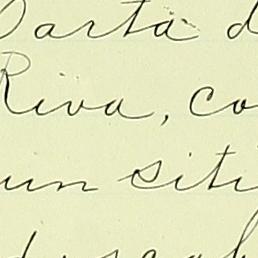 Carta d
Riva, co
un siti